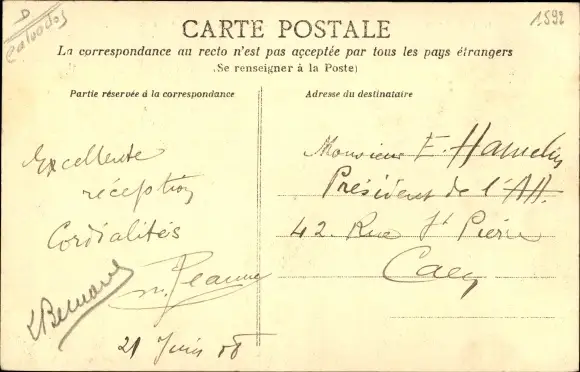 D
Calvados
1592
CARTE POSTALE
La correspondance au recto n'est pas acceptée par tous les pays étrangers
(Se renseigner à la Poste)
Partie réservée à la correspondance
Excellente
réception
Cordialités
M. Jeanne
L Bernard
21 Juin 08
Adresse du destinataire
Monsieur E. Hamelin
Président de l'AA.
42. Rue St Pierre
Caen